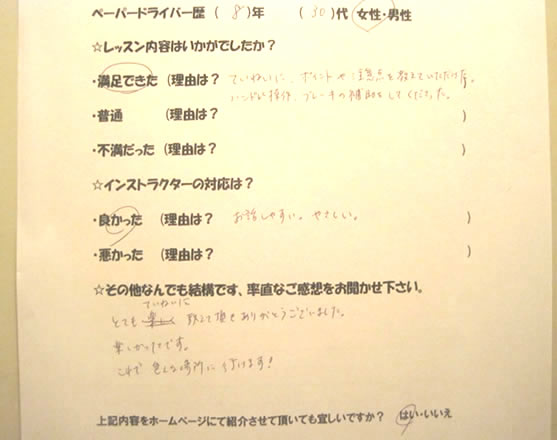 ペーパードライバー歴 ( 8 )年 ( 30 )代 女性・男性
☆レッスン内容はいかがでしたか?
・満足できた (理由は? ていねいに、ポイントや注意点を教えていただけた。
ハンドル操作、ブレーキの補助をしてくださった。
・普通 (理由は? )
・不満だった (理由は? )
☆インストラクターの対応は?
・良かった (理由は? お話しやすい。やさしい。 )
・悪かった (理由は? )
☆その他なんでも結構です、率直なご感想をお聞かせ下さい。
ていねいに
とても 楽しく 教えて頂きありがとうございました。
楽しかったです。
これで 色んな場所に 行けます!
上記内容をホームページにて紹介させて頂いても宜しいですか? はい・いいえ